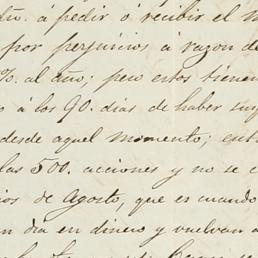 á pedir ó recibir el
por perjuicios á razon de
%. al año; pero estos tienen
á los 90. dias de haber
desde aquel momento;
las 500. acciones y no se
de Agosto, que es cuando
dia en dinero y vuelvan á